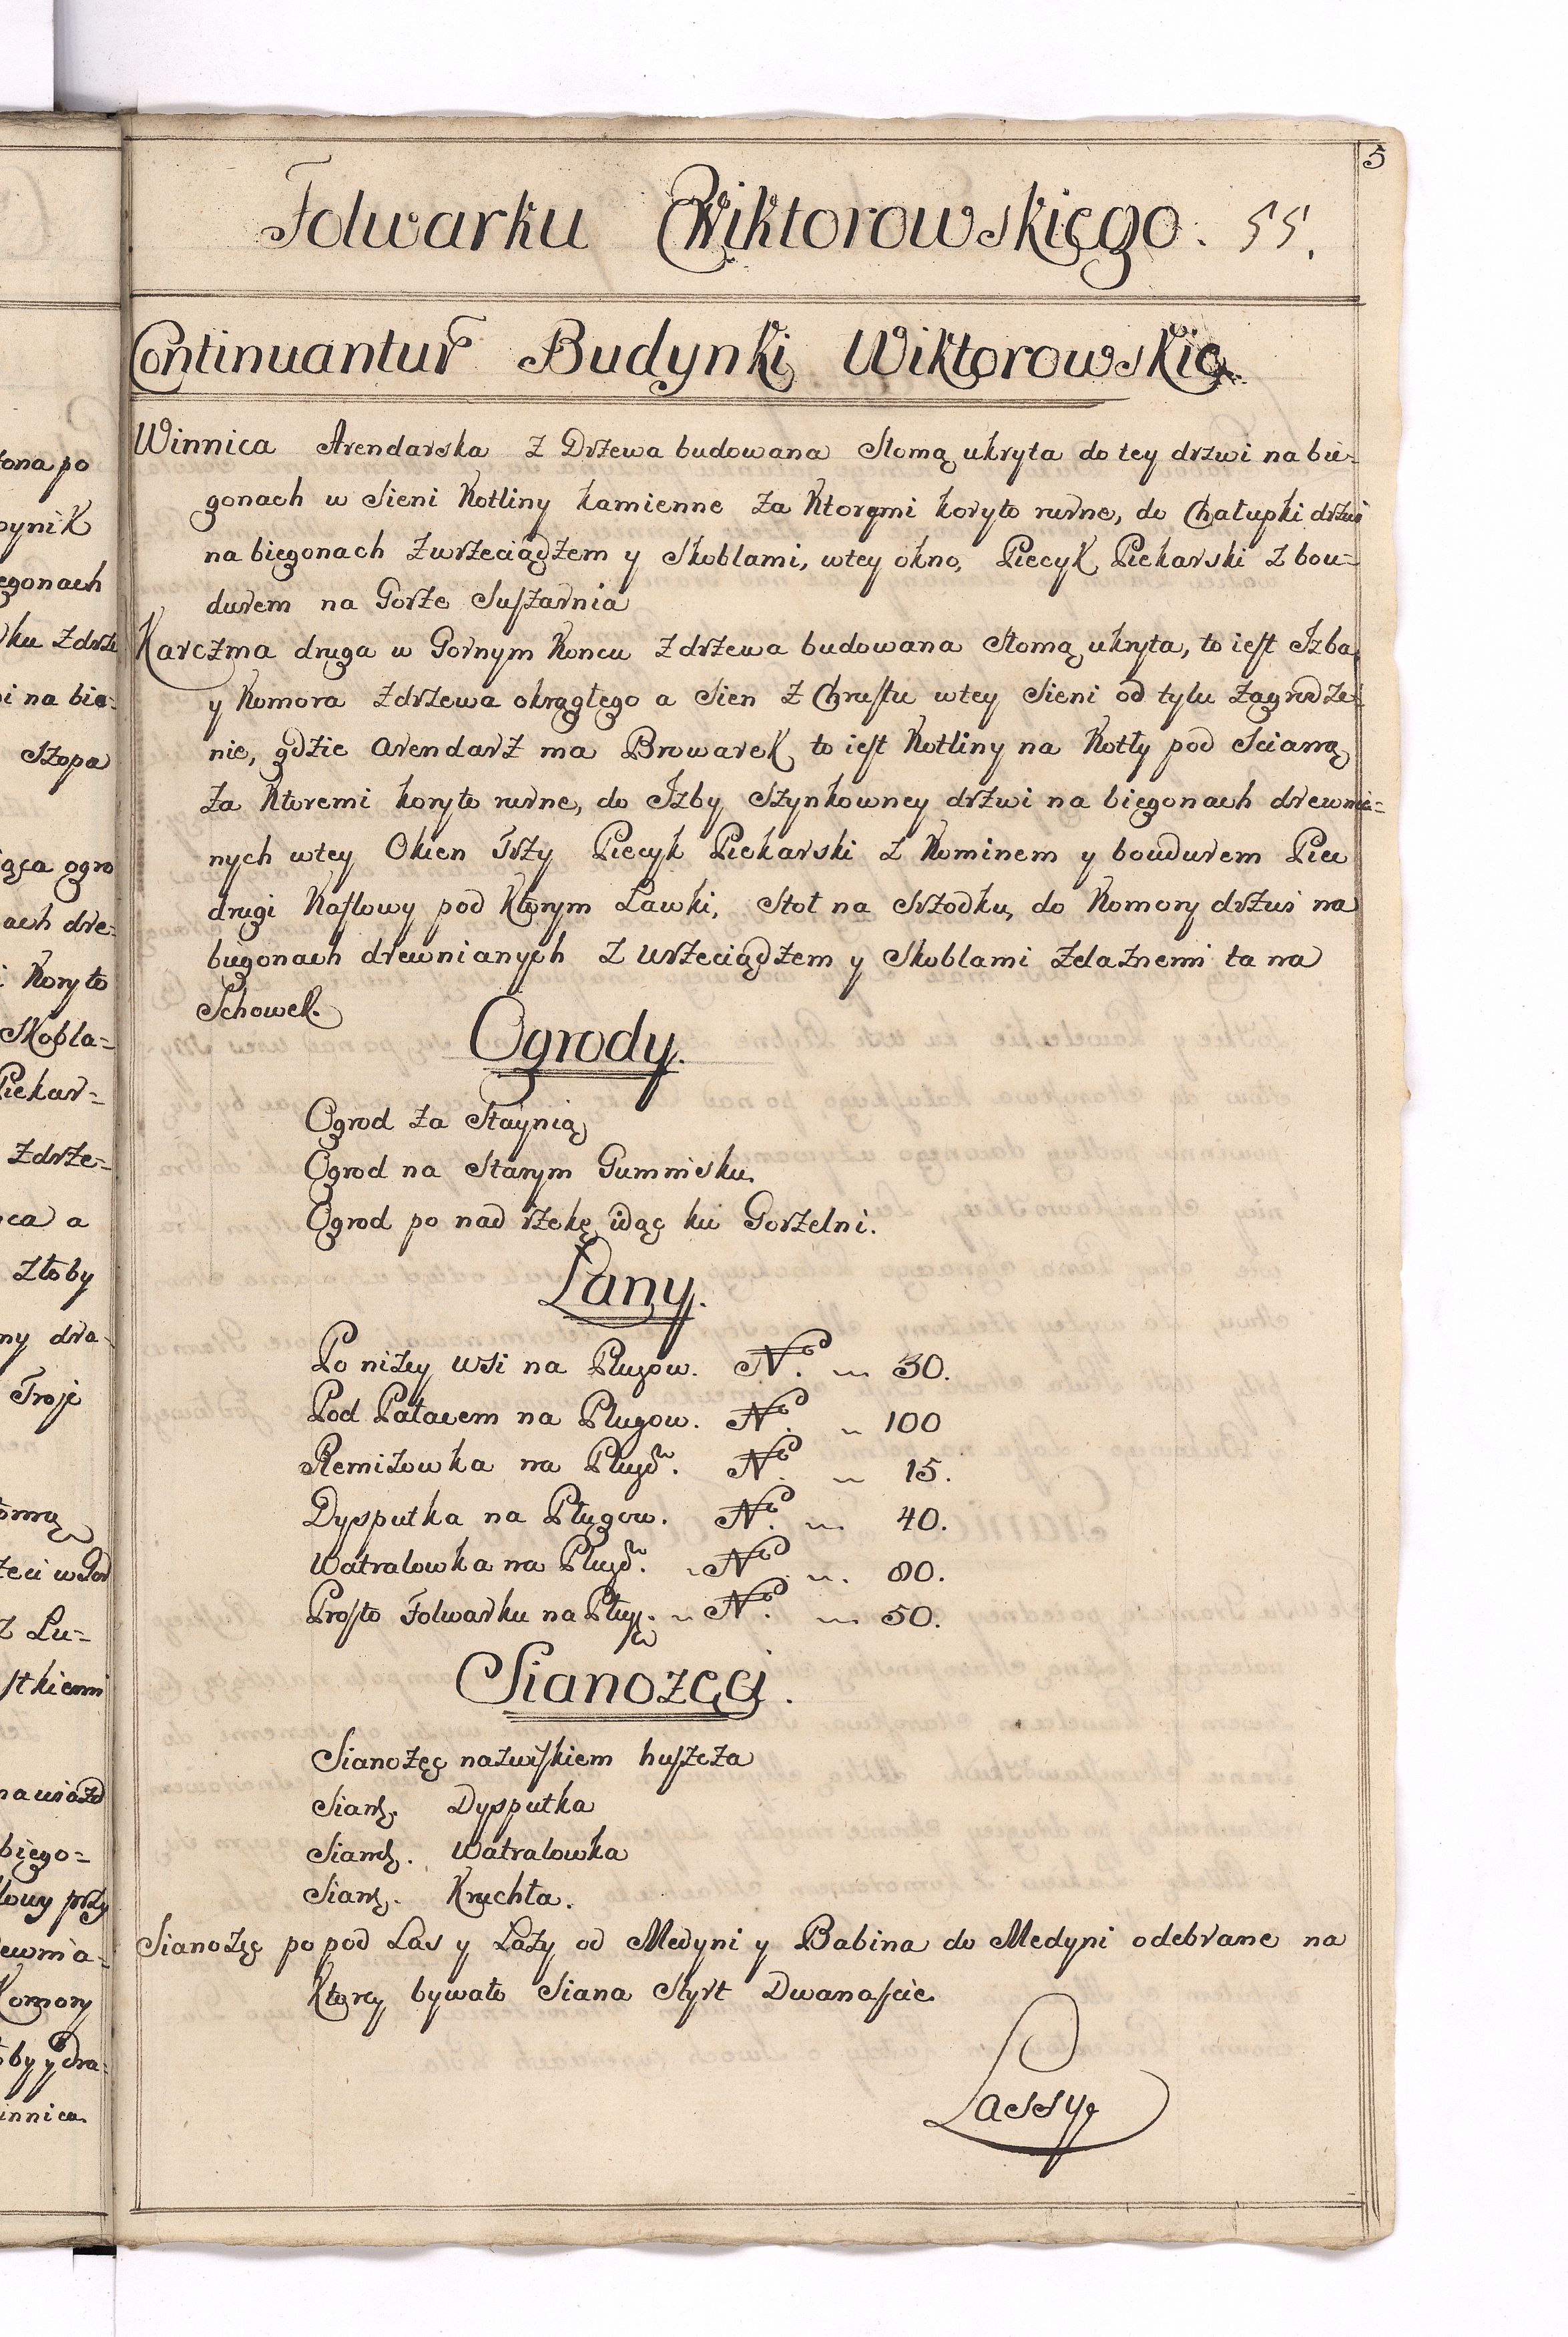 5
Folwarku Wiktorowskiego. 55.
Continuantur Budynki Wiktorowskie
Winnica Arendarska z Drzewa budowana Słomą ukryta do tey drzwi na bie=
gonach w Sieni Kotliny kamienne za Ktoremi koryto rurne, do Chałupki drzwi
na biegonach z wrzeciądzem y Skoblami, w tey okno, Piecyk Piekarski z bou=
durem na Gorze Suszarnia
Karczma druga w Gornym Koncu z drzewa budowana Słomą ukryta, to iest Izba
y Komora z drzewa okrągłego a Sien z Chrustu w tey Sieni od tylu zagrodze=
nie, gdzie arendarz ma Browarek to iest Kotliny na Kotły pod Scianą
za Ktoremi koryto rurne, do Izby Szynkowney drzwi na biegonach drewnia=
nych w tey Okien Trzy Piecyk Piekarski z Kominem y boudurem Piec
drugi Kaflowy pod Ktorym Ławki, Stoł na Srzodku, do Komory drzwi na
biegonach drewnianych z wrzeciądzem y Skoblami żelaznemi ta na
Schowek.
Ogrody.
Ogrod za Staynią
Ogrod na Starym Gumnisku.
Ogrod po nad rzekę idąc ku Gorzelni.
Łany.
Po niżey wsi na Pługow. No. 30.
Pod Pałacem na Pługow. No. 100
Remizowka na Pługow. No. 15.
Dysputka na Pługow. No. 40.
Watralowka na Pługow. No. 80.
Prosto Folwarku na Pług. No. 50.
Sianozęci.
Sianożęc nazwiskiem huszcza
Sianż. Dysputka
Sianż. Watralowka
Sianż. Kruchta.
Sianożęc po pod Las y Łazy od Medyni y Babina do Medyni odebrane na
Ktorey bywało Siana Styrt Dwanaście
Lassy